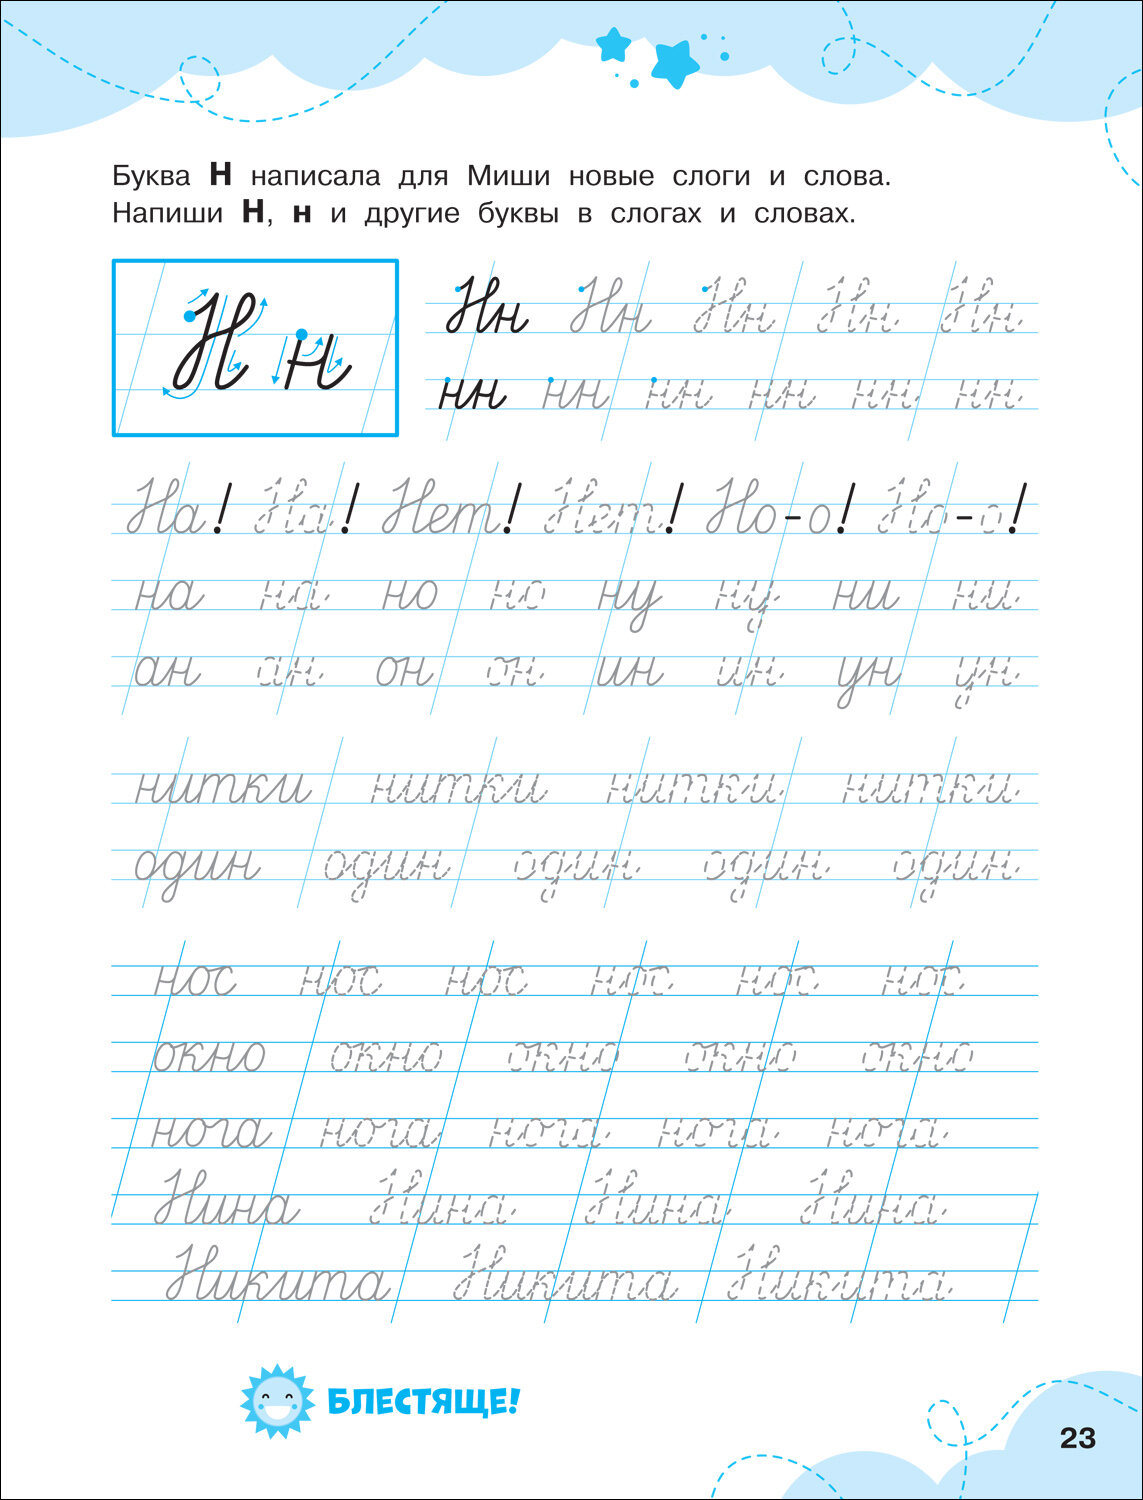 Буква Н написала для Миши новые слоги и слова.
Напиши Н, н и другие буквы в слогах и словах.
Н н
Нн Нн Нн Нн Нн
нн нн нн нн нн нн
На! На! Нет! Нет! Но-о! Но-о!
на на но но ну ну ни ни
ан ан он он ин ин ун ун
нитки нитки нитки нитки
один один один один один
нос нос нос нос нос нос
окно окно окно окно окно
нога нога нога нога нога
Нина Нина Нина Нина
Никита Никита Никита
БЛЕСТЯЩЕ!
23